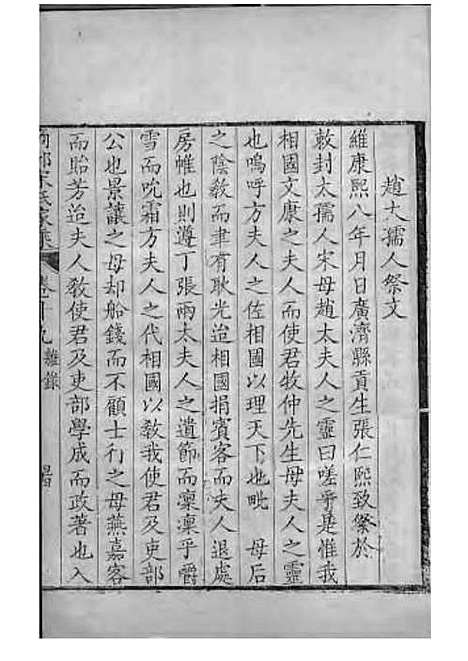 趙太孺人祭文
維康熙八年月日廣濟縣貢生張仁熙致祭於
敕封太孺人宋母趙太夫人之靈曰嗟乎是惟我
相國文康之夫人而使君牧仲先生母夫人之靈
也嗚呼方夫人之佐相國以理天下地毗 母后
之陰教而聿有耿光迨相國捐賓客而夫人退處
房帷也則遵丁張兩太夫人之遺節而凜凜乎嚼
雪而吮霜方夫人之代相國以敎我使君及吏部
公也景讓之母却船錢而不顧士行之母燕嘉客
而貽芳迨夫人敎使君及吏部學成而政著也入
商邱宋氏家乘 卷十九 雜錄